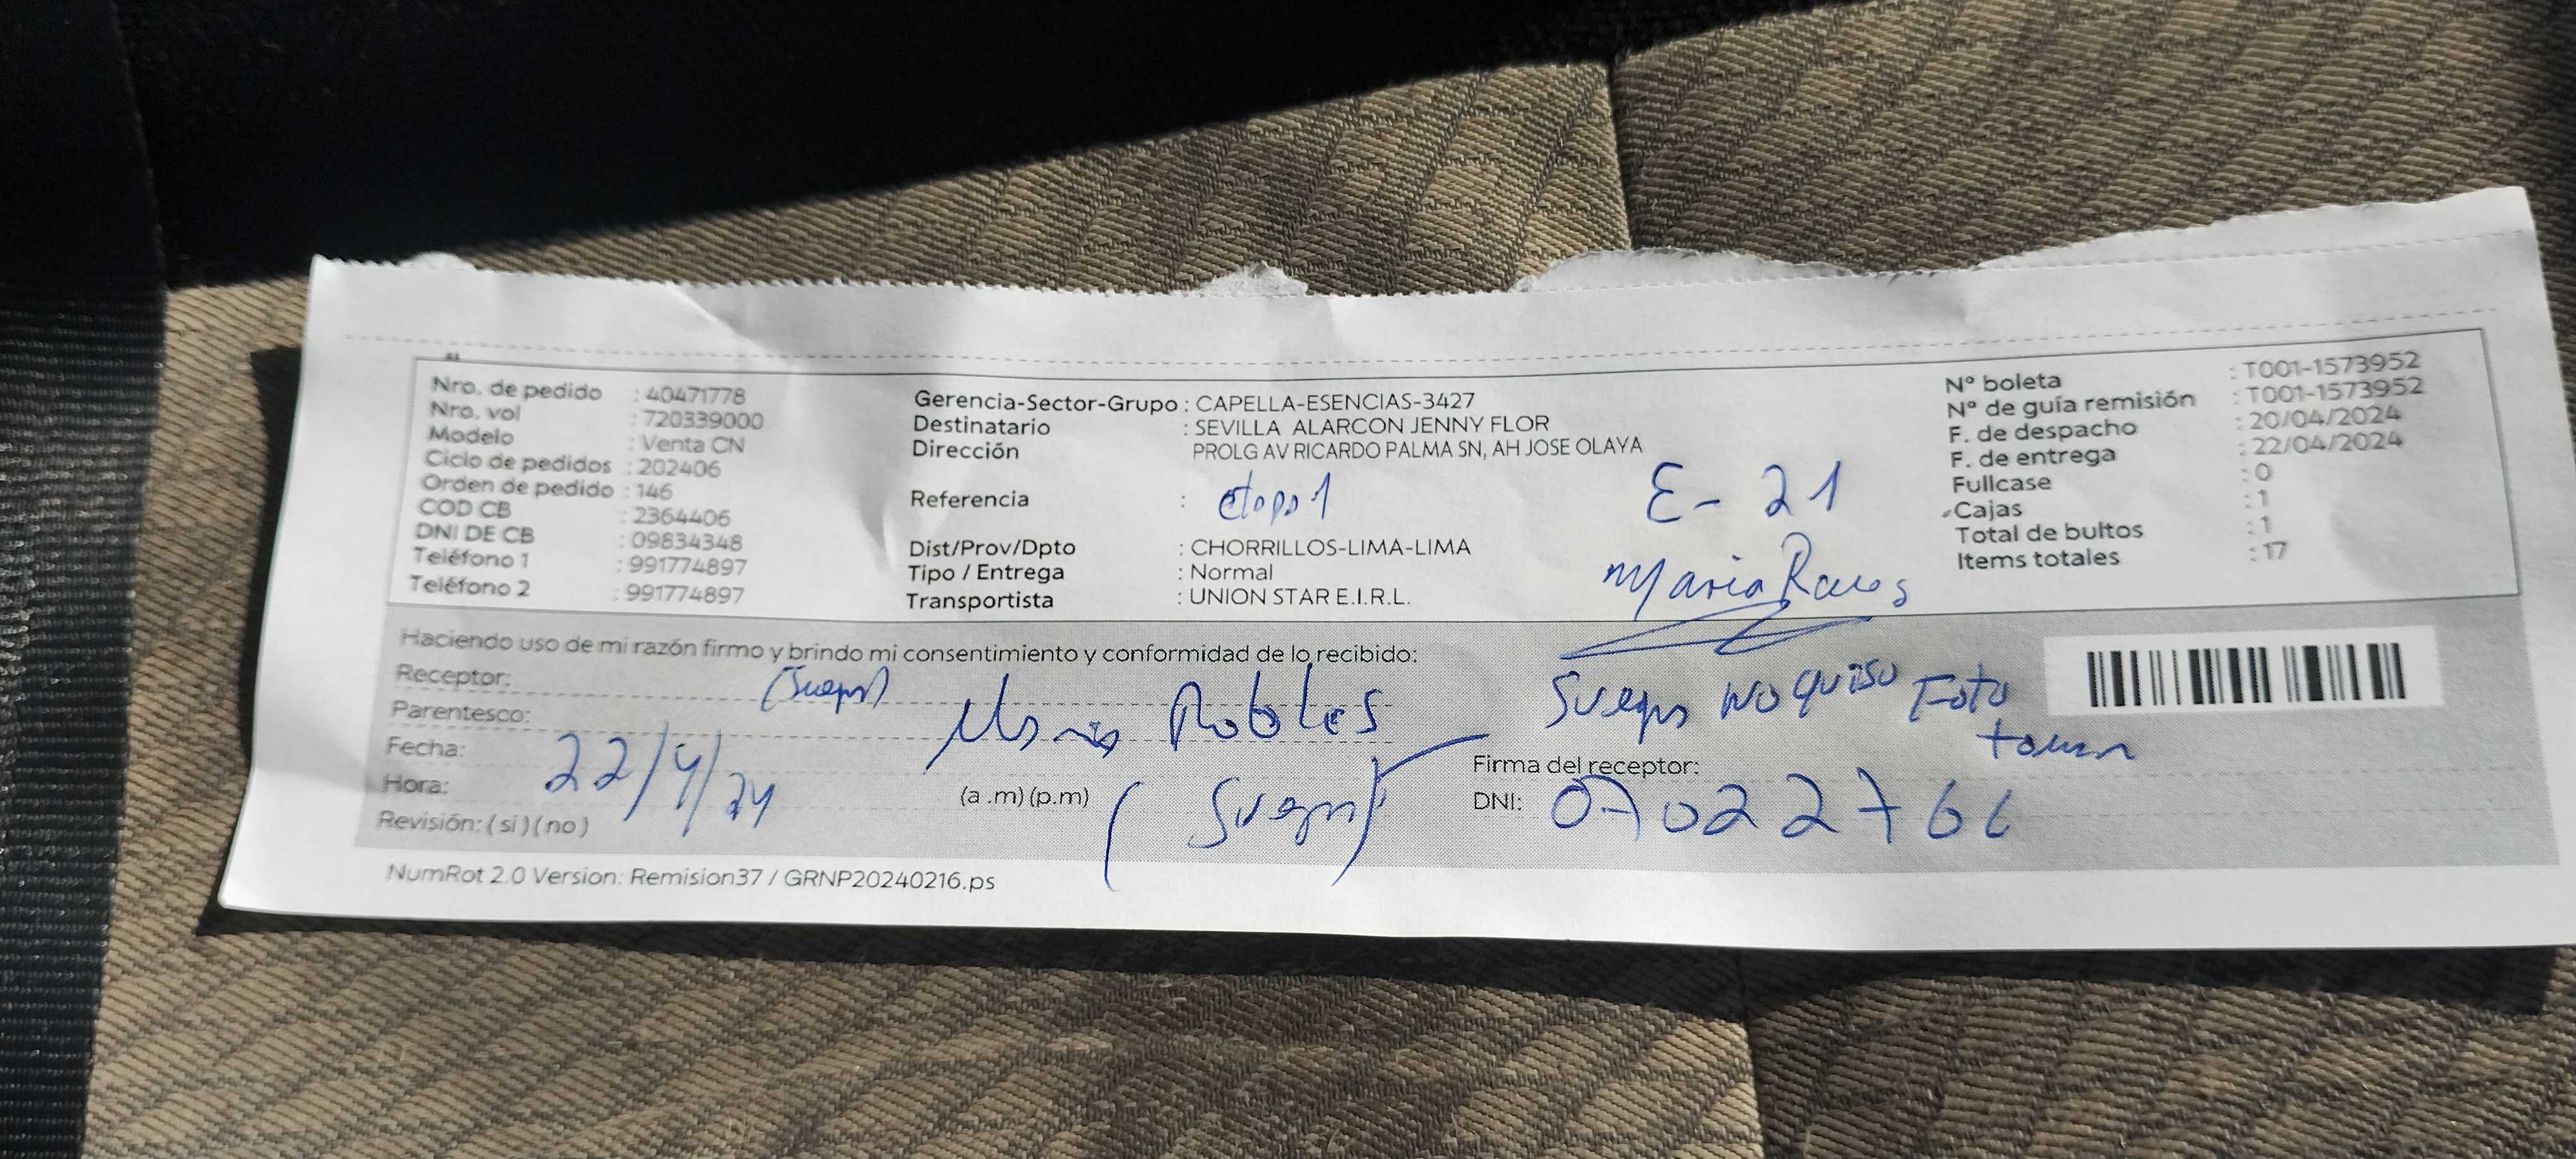 Nro. de pedido : 40471778
Nro. vol : 720339000
Modelo : Venta CN
Ciclo de pedidos : 202406
Orden de pedido : 146
COD CB : 2364406
DNI DE CB : 09834348
Teléfono 1 : 991774897
Teléfono 2 : 991774897
Gerencia-Sector-Grupo : CAPELLA-ESENCIAS-3427
Destinatario : SEVILLA ALARCON JENNY FLOR
Dirección PROLG AV RICARDO PALMA SN, AH JOSE OLAYA
Referencia : etapa 1 E-21
Dist/Prov/Dpto : CHORRILLOS-LIMA-LIMA
Tipo / Entrega : Normal
Transportista : UNION STAR E.I.R.L.
Maria
Nº boleta : T001-1573952
Nº de guía remisión : T001-1573952
F. de despacho : 20/04/2024
F. de entrega : 22/04/2024
Fullcase : 0
Cajas : 1
Total de bultos : 1
Items totales : 17
Haciendo uso de mi razón firmo y brindo mi consentimiento y conformidad de lo recibido:
Receptor: (Suegra) Maria Robles
Parentesco:
Fecha: 22/4/24
Hora: (a.m) (p.m) (Suegra)
Revisión: (si) (no)
Suegra no quiso Foto
tomar
Firma del receptor:
DNI: 0702276
NumRot 2.0 Version: Remision37 / GRNP20240216.ps